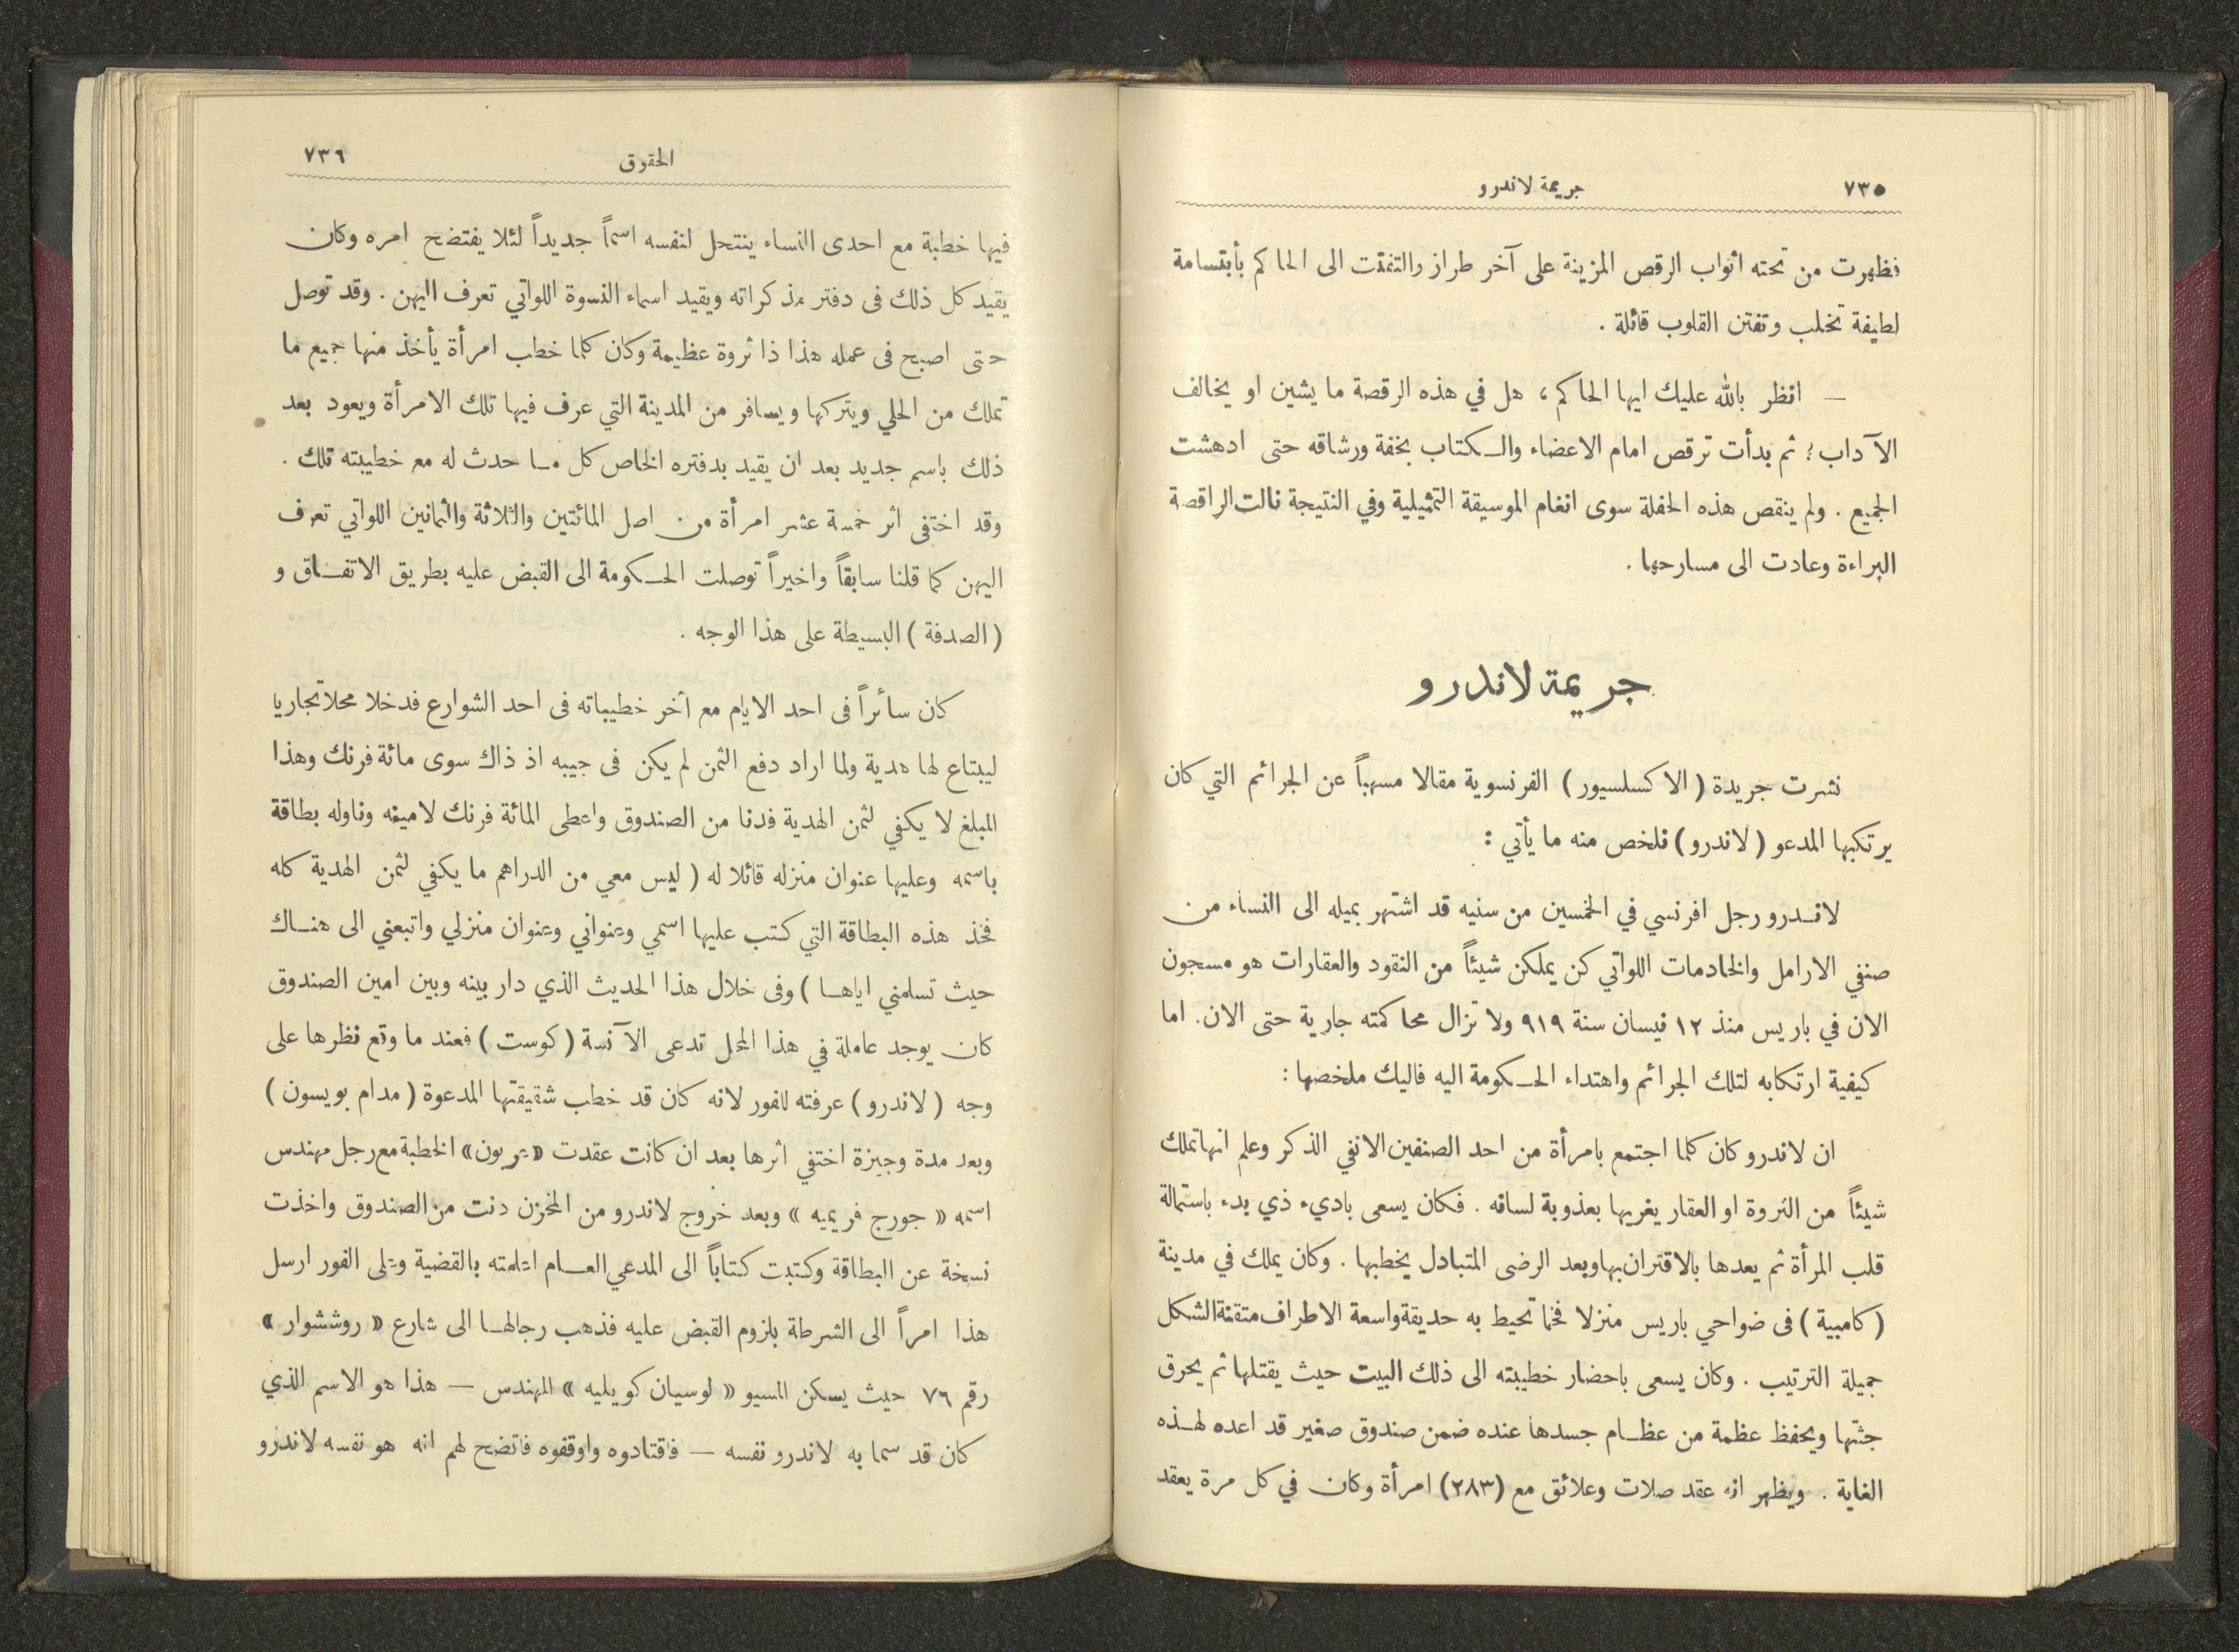 ٧٣٥
جريمة لاندرو
فظهرت من تحته اثواب الرقص المزينة على آخر طراز والتفتت الى الحاكم بأبتسامة
لطيفة تخلب وتفتن القلوب قائلة .
— انظر بالله عليك ايها الحاكم ، هل في هذه الرقصة ما يشين او يخالف
الآداب ؟ ثم بدأت ترقص امام الاعضاء والكتاب بخفة ورشاقه حتى ادهشت
الجميع . ولم ينقص هذه الحفلة سوى انغام الموسيقة التمثيلية وفي النتيجة نالت الراقصة
البراءة وعادت الى مسارحها .
جريمة لاندرو
نشرت جريدة ( الاكسلسيور ) الفرنسوية مقالا مسهباً عن الجرائم التي كان
يرتكبها المدعو ( لاندرو ) نلخص منه ما يأتي :
لاندرو رجل افرنسي في الخمسين من سنيه قد اشتهر بميله الى النساء من
صنفي الارامل والخادمات اللواتي كن يملكن شيئاً من النقود والعقارات هو مسجون
الان في باريس منذ ١٢ نيسان سنة ٩١٩ ولا تزال محاكمته جارية حتى الان . اما
كيفية ارتكابه لتلك الجرائم واهتداء الحكومة اليه فاليك ملخصها :
ان لاندرو كان كلما اجتمع بامرأة من احد الصنفين الانفي الذكر وعلم انها تملك
شيئاً من الثروة او العقار يغريها بعذوبة لسانه . فكان يسعى باديء ذي بدء باستمالة
قلب المرأة ثم يعدها بالاقتران بها وبعد الرضى المتبادل يخطبها . وكان يملك في مدينة
( كامبية ) فى ضواحي باريس منزلا فخما تحيط به حديقة واسعة الاطراف متقنة الشكل
جميلة الترتيب . وكان يسعى باحضار خطيبته الى ذلك البيت حيث يقتلها ثم يحرق
جثتها ويحفظ عظمة من عظام جسدها عنده ضمن صندوق صغير قد اعده لهذه
الغاية . ويظهر انه عقد صلات وعلائق مع (٢٨٣) امرأة وكان في كل مرة يعقد
الحقوق
٧٣٦
فيها خطبة مع احدى النساء ينتحل لنفسه اسماً جديداً لئلا يفتضح امره وكان
يقيد كل ذلك فى دفتر مذكراته ويقيد اسماء النسوة اللواتي تعرف اليهن . وقد توصل
حتى اصبح فى عمله هذا ذا ثروة عظيمة وكان كلما خطب امرأة يأخذ منها جميع ما
تملك من الحلي ويتركها ويسافر من المدينة التي عرف فيها تلك الامرأة ويعود بعد
ذلك باسم جديد بعد ان يقيد بدفتره الخاص كل ما حدث له مع خطيبته تلك .
وقد اختفى اثر خمسة عشر امرأة من اصل المائتين والثلاثة والثمانين اللواتي تعرف
اليهن كما قلنا سابقاً واخيراً توصلت الحكومة الى القبض عليه بطريق الاتفاق و
( الصدفة ) البسيطة على هذا الوجه .
كان سأراً فى احد الايام مع آخر خطيباته فى احد الشوارع فدخلا محلا تجاريا
ليبتاع لها هدية ولما اراد دفع الثمن لم يكن فى جيبه اذ ذاك سوى مائة فرنك وهذا
المبلغ لا يكفي لثمن الهدية فدنا من الصندوق واعطى المائة فرنك لامينه وناوله بطاقة
باسمه وعليها عنوان منزله قائلا له ( ليس معي من الدراهم ما يكفي لثمن الهدية كله
فخذ هذه البطاقة التي كتب عليها اسمي وعنواني وعنوان منزلي واتبعني الى هناك
حيث تسلمني اياها ) وفى خلال هذا الحديث الذي دار بينه وبين امين الصندوق
كان يوجد عاملة في هذا المحل تدعى الآنسة ( كوست ) فعند ما وقع نظرها على
وجه ( لاندرو ) عرفته للفور لانه كان قد خطب شقيقتها المدعوة ( مدام بويسون )
وبعد مدة وجيزة اختفي اثرها بعد ان كانت عقدت « عربون » الخطبة مع رجل مهندس
اسمه « جورج فريميه » وبعد خروج لاندرو من المخزن دنت من الصندوق واخذت
نسخة عن البطاقة وكتبت كتاباً الى المدعي العام اعلمته بالقضية وعلى الفور ارسل
هذا امراً الى الشرطة بلزوم القبض عليه فذهب رجالها الى شارع « روششوار »
رقم ٧٦ حيث يسكن المسيو « لوسيان كويليه » المهندس — هذا هو الاسم الذي
كان قد سما به لاندرو نفسه — فاقتادوه واوقفوه فاتضح لهم انه هو نفسه لاندرو